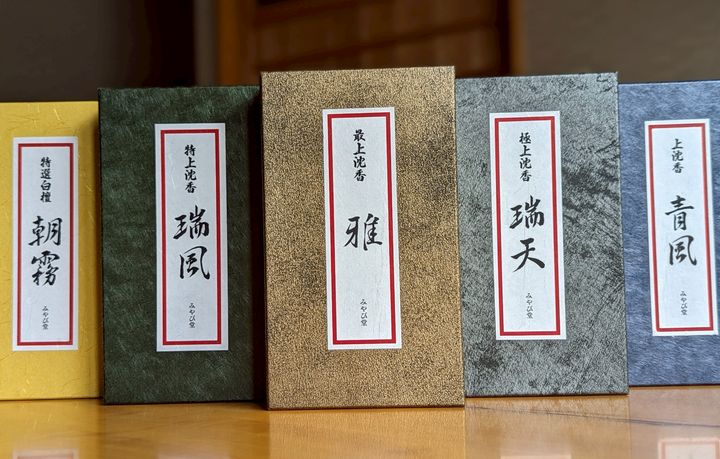 特選白檀
朝霧
みやび堂
特上沈香
瑞風
みやび堂
最上沈香
雅
みやび堂
極上沈香
瑞天
みやび堂
上沈香
青風
みやび堂